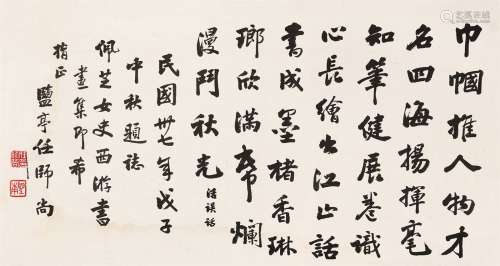 巾帼推人物才
名四海揚揮毫
知筆健展卷識
心長繪出江山話
書成墨楮香琳
瑯欣满帋爛
漫鬥秋光 活误話
民國卅七年戊子
中秋題誌
佩芝女史西游書
畫集即希
指正
藍亭任師尚